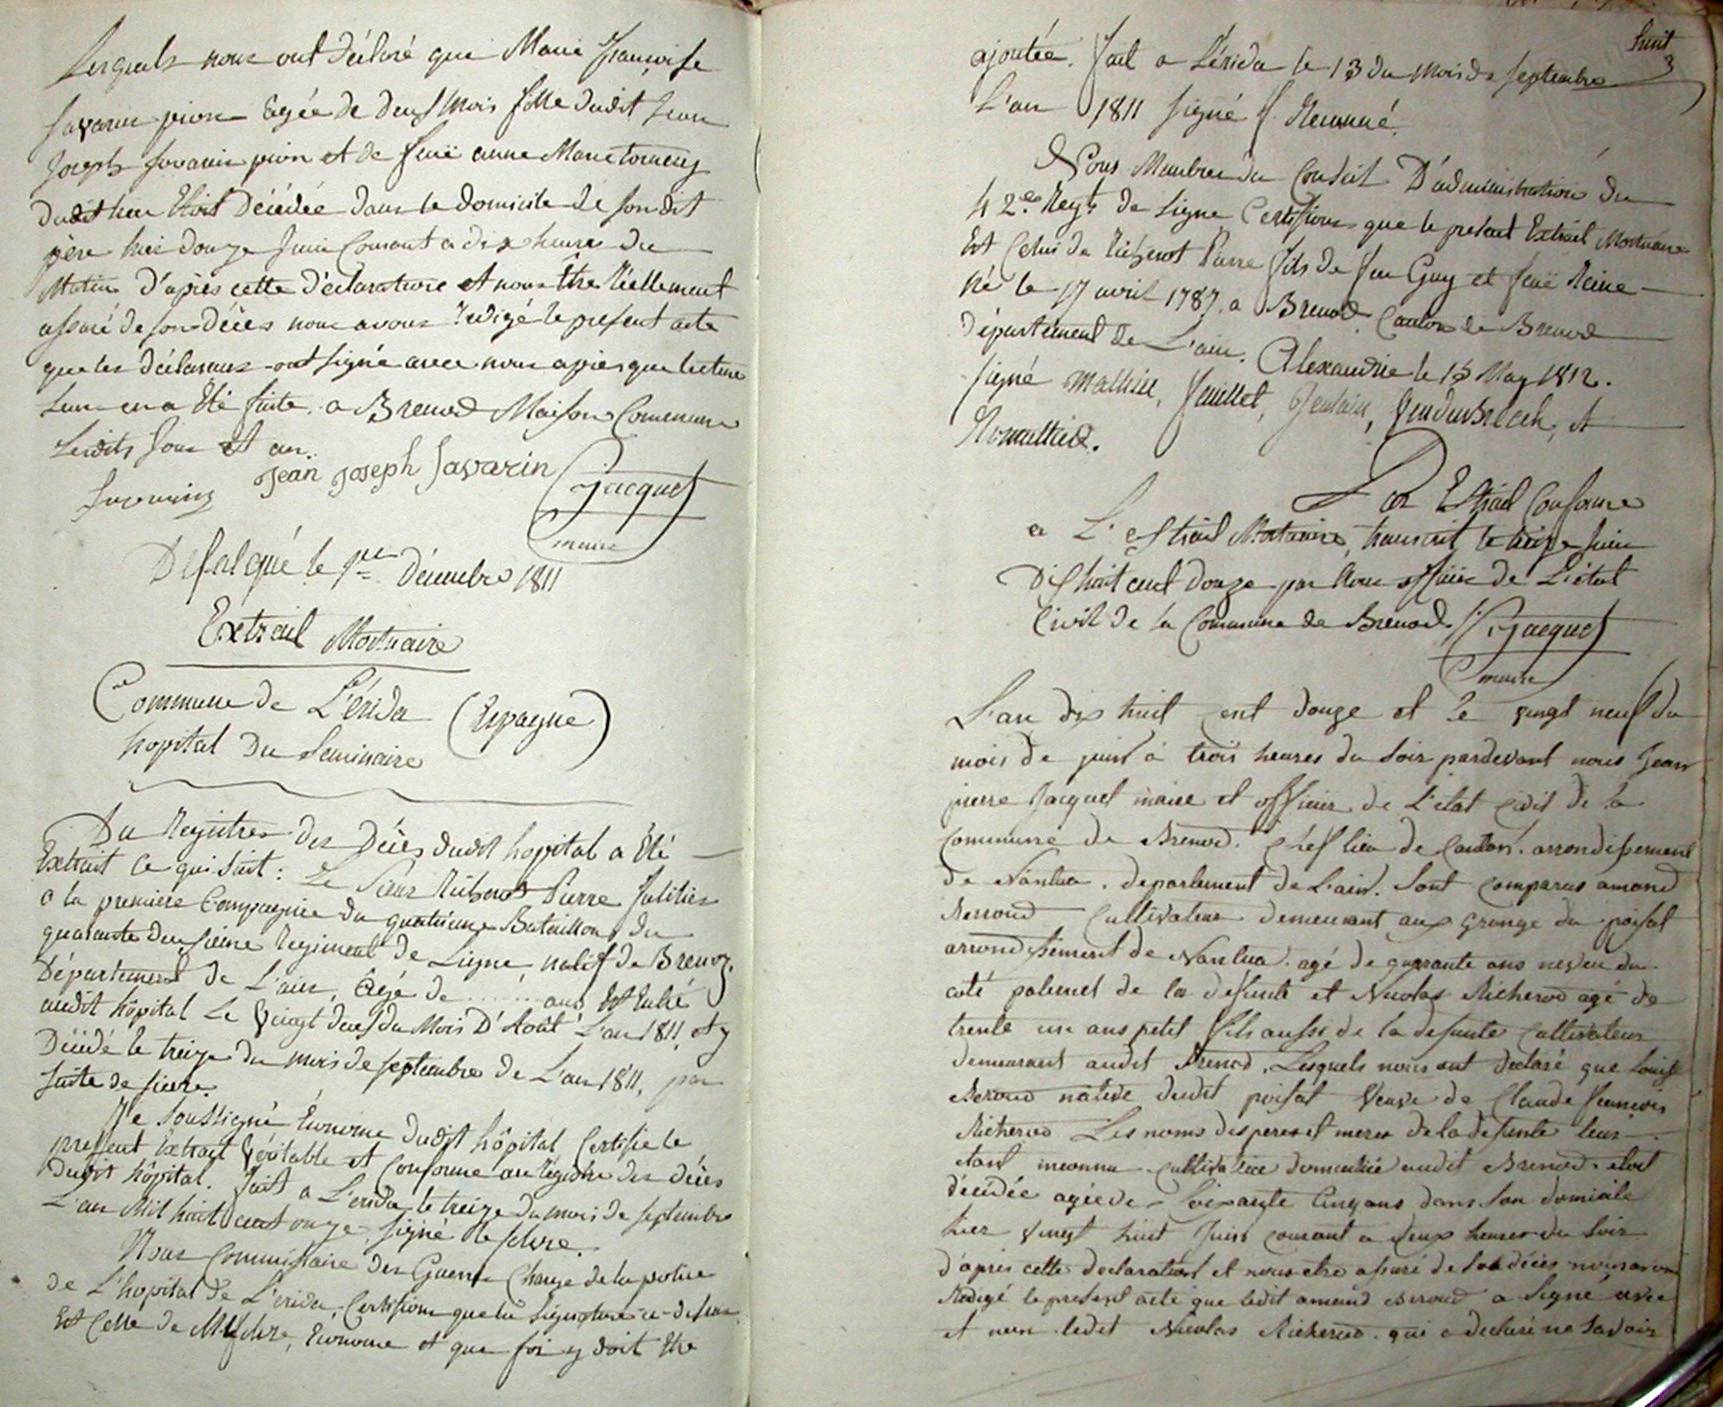 Lesquels nous ont déclaré que Marie Françoise
Savarin pion Agée de deux Mois fille dudit Jean
Joseph Savarin pion et de feue anne Marie
dudit lieu Etoit Décédée dans le domicile de son dit
père hier douze Juin Courant a dix heures du
Matin d'après cette déclaration et nous être Réellement
assuré de son décès nous avons Redigé le present acte
que les déclarans ont signé avec nous après que lecture
leur en a Eté faite, a Brenod Maison Commune
Lesdits Jour et an.
Savarin Jean Joseph Savarin Jacquet
maire
Défalqué le 1er Décembre 1811
Extrait Mortuaire
Commune de L'érida (Espagne)
hopital Du Seminaire
Du Registres des Décès dudit hopital a Eté
Extrait ce qui suit: Le Sieur Richerot Pierre fusilier
a la premiere Compagnie du quatrieme Bataillon du
quarante deuxieme Regiment de Ligne, natif de Brenoz,
Département de L'ain, Agé de ........ ans, Est Entré
audit hôpital Le Vingt deux du Mois D'Août L'an 1811, et y
Décédé le treize du mois de septembre de L'an 1811, par
suite de fievre.
Je soussigné Econome dudit hôpital Certifie le
present Extrait Véritable et Conforme au registre des décès
dudit hôpital. fait a L'erida le treize du mois de septembre
L'an Mil huit cent onze, signé
Nous Commissaire des Guerres Chargé de la police
de L'hopital de L'erida, Certifions que la signature ci-dessus
Est Celle de Mr Econome et que foi y doit Etre
huit
ajoutée. fait a Lérida le 13 du Mois de septembre
L'an 1811 signé
Nous Membres du Conseil D'administration du
42.e Regt de Ligne Certifions que le present Extrait Mortuaire
Est Celui de Richerot Pierre fils de feu Guy et feue Reine
Né le 17 avril 1787, a Brenod Canton de Brenod
département de L'ain. Alexandrie le 15 May 1812.
signé Mathieu, feuillet, et
Par Extrait Conforme
a L'extrait Mortuaire, transcrit le treize Juin
Dix huit cent douze par Nous officier de L'état
Civil de la Commune de Brenod. Jacquet
maire
L'an dix huit cent douze et le vingt neuf du
mois de juin à trois heures du soir pardevant nous Jean
pierre Jacquet maire et officier de L'état civil de la
commune de Brenod. chef lieu de Canton. arrondissement
de Nantua. departement de L'ain. Sont comparus amand
Beroud cultivateur demeurant aux grange du poisat
arrondissement de Nantua. agé de quarante ans neveu du
coté paternel de la defunte et Nicolas Richerod agé de
trente un ans petit fils aussi de la defunte cultivateur
demeurant audit Brenod. Lesquels nous ont declaré que Louise
Beroud native dudit poisat veuve de Claude françois
Richerod Les noms des peres et meres de la defunte leur
etant inconnu cultivatrice domiciliée audit Brenod. etoit
décédée agée de Soixante Cinq ans dans son domicile
hier vingt huit Juin courant a deux heures du soir
d'après cette declaration et nous etre assuré de son décès nous avons
Redigé le present acte que ledit amand Beroud a signé avec
et non ledit Nicolas Richerod. qui a declaré ne savoir